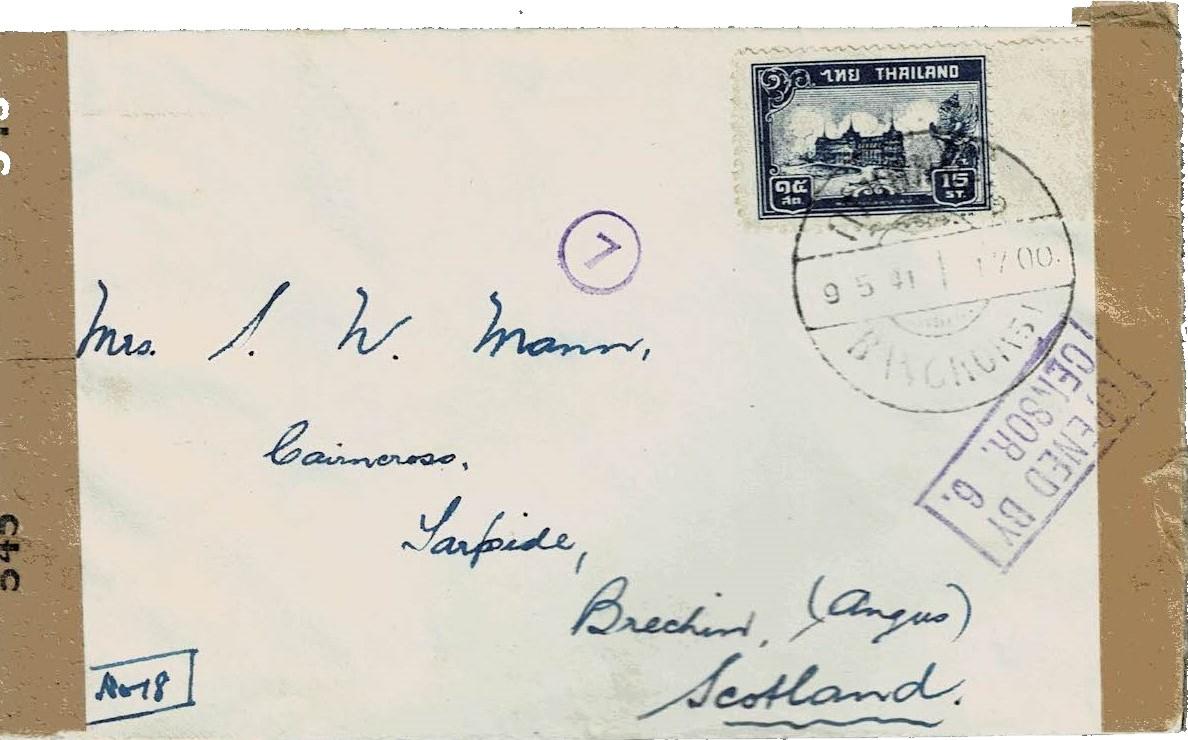 ไทย THAILAND
๑๕ 15
สต. ST.
7
9 5 41 17 00.
BANGKOK
OPENED BY
CENSOR. 6.
Mrs. S. W. Mann,
Cairncross,
Tarfside,
Brechin, (Angus)
Scotland.
No 18
545